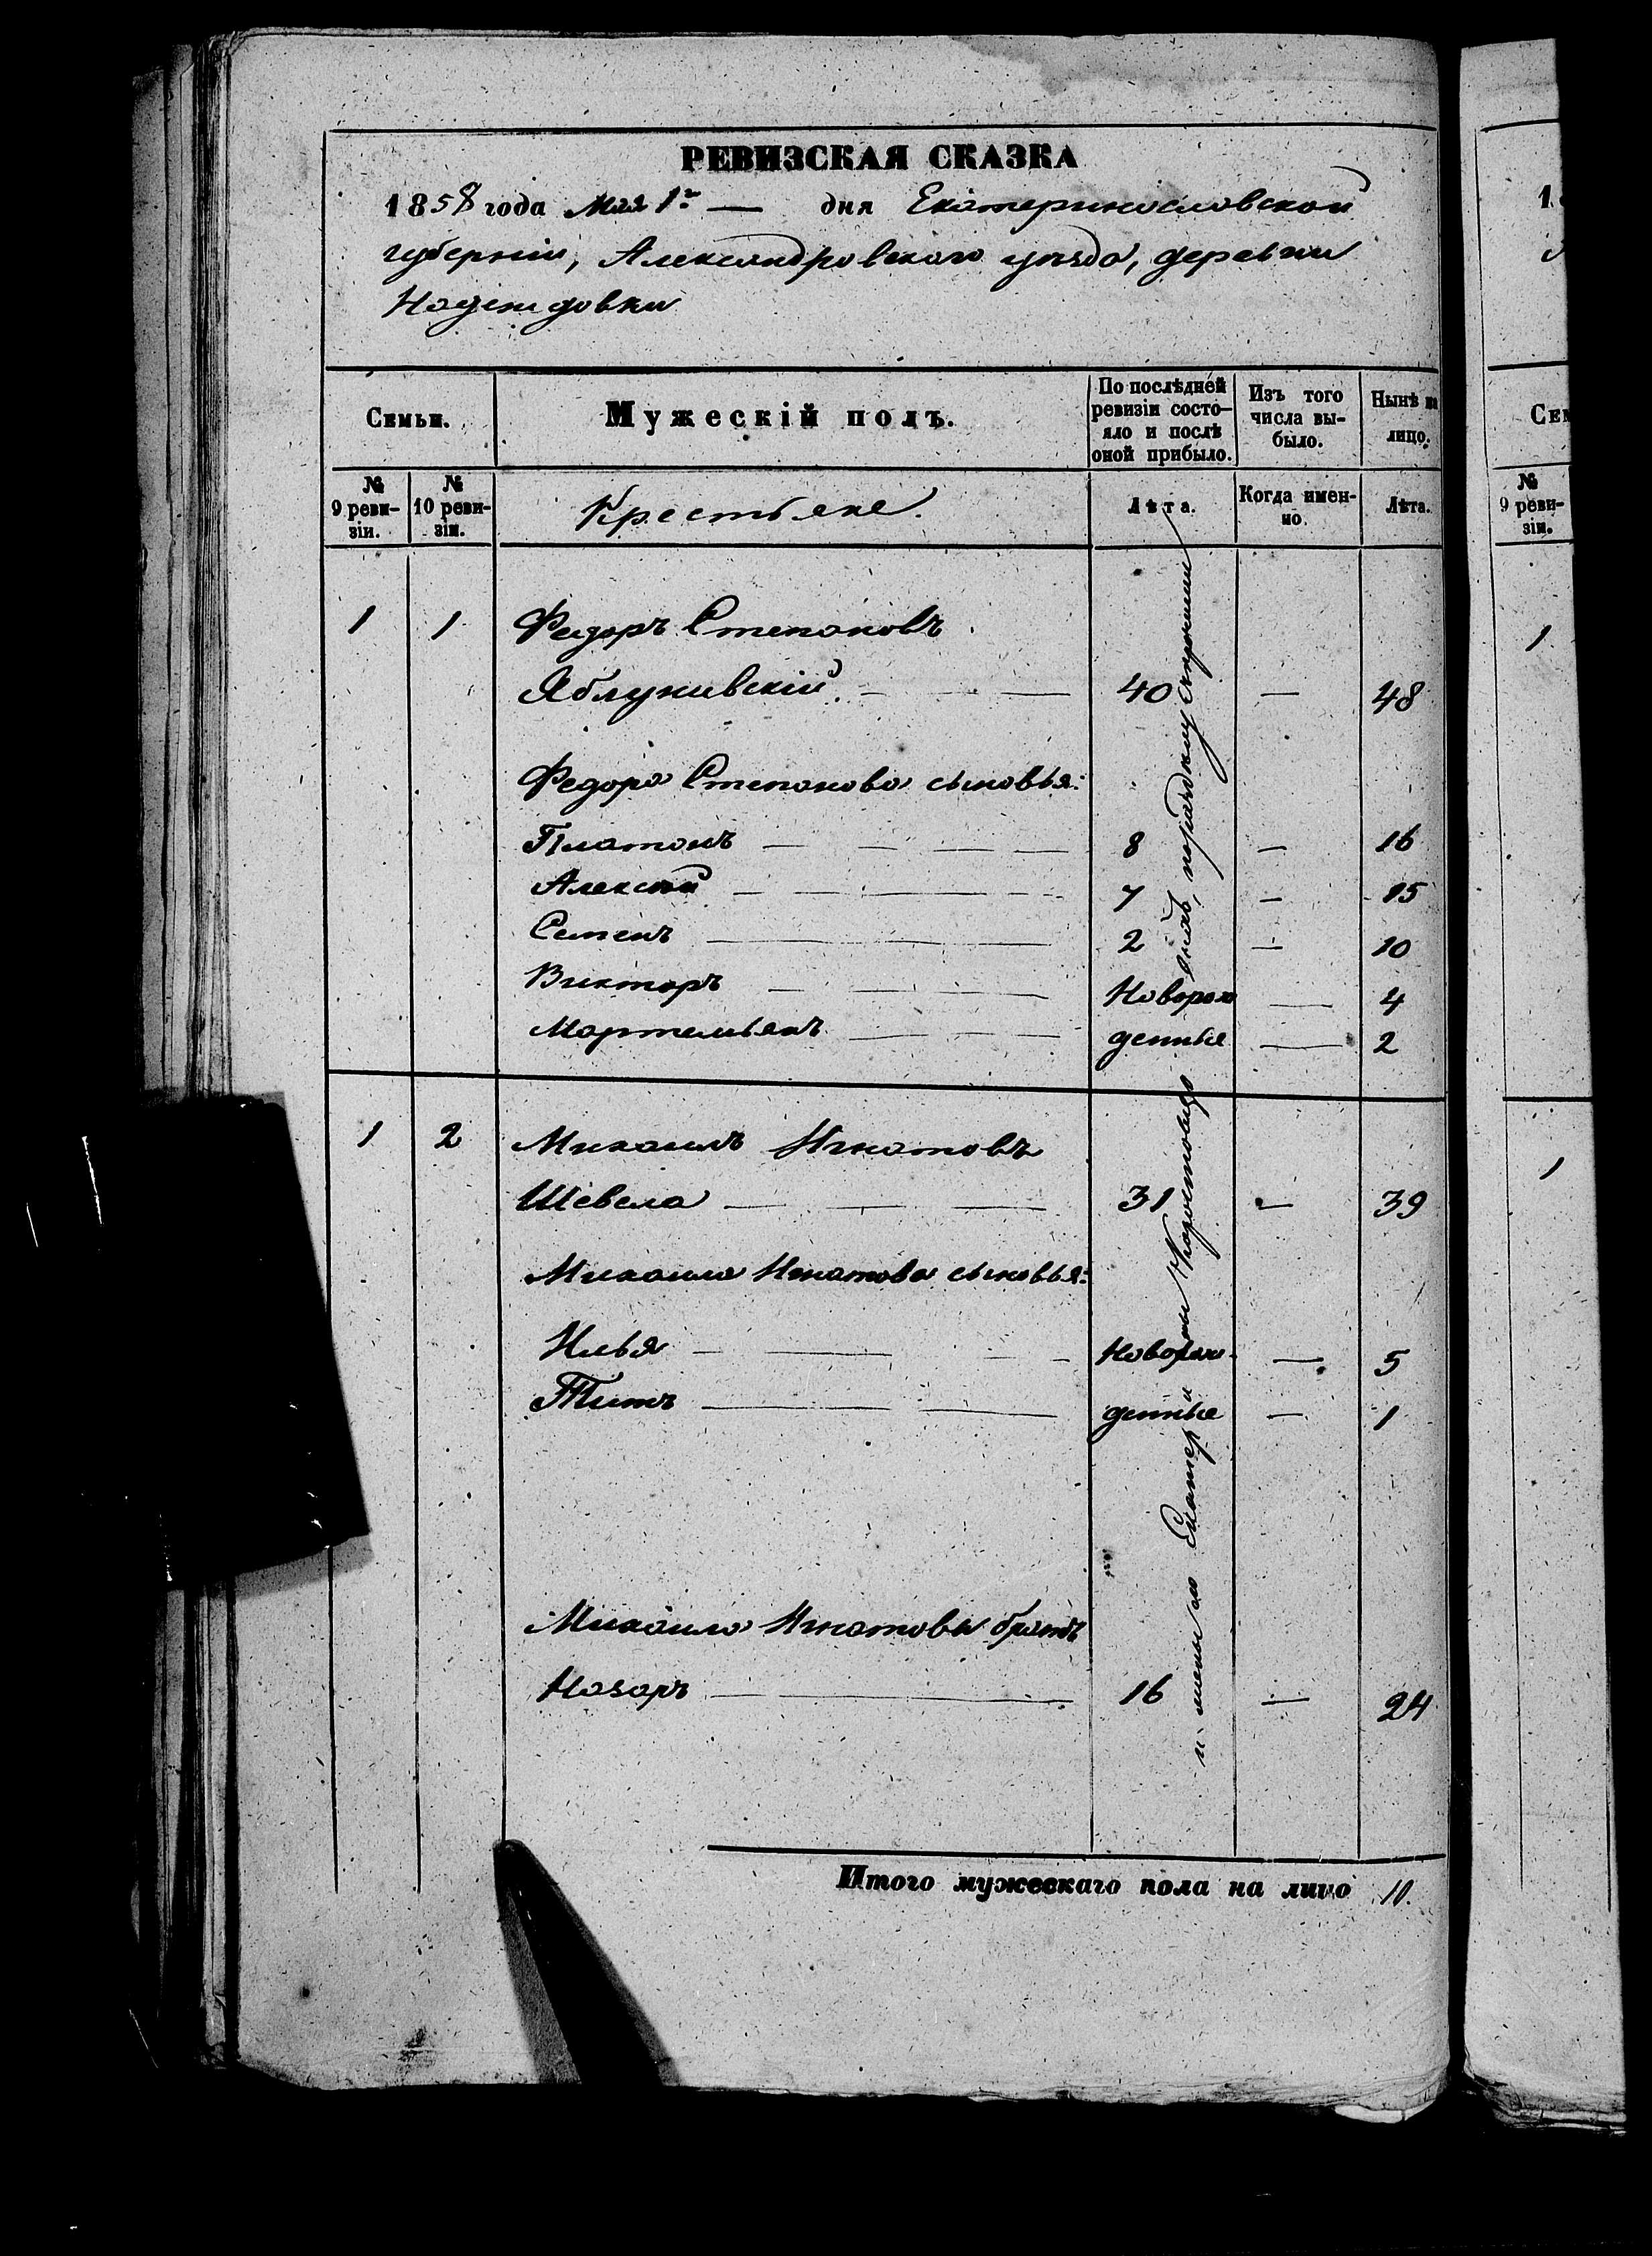 РЕВИЗСКАЯ СКАЗКА
1858 года Мая 1го — дня Екатеринославской
губерніи, Александровскаго уѣзда, деревни
Надеждовки
Семьи.
Мужескій полъ.
По послѣдней ревизіи состо-
яло и послѣ оной прибыло.
Изъ того числа вы-
было.
Нынѣ на лицо.
№ 9 реви-
зіи.
№ 10 реви-
зіи.
Крестьяне.
Лѣта.
Когда имен-
но.
Лѣта.
1 1 Федоръ Степановъ
Яблунивскій. — 40 — 48
Федора Степанова сыновья:
Платонъ — 8 — 16
Алексѣй — 7 — 15
Семенъ — 2 — 10
Викторъ — Новорож — 4
Мартемьянъ — денные — 2
1 2 Михаилъ Игнатовъ
Шевела — 31 — 39
Михаила Игнатова сыновья:
Илья — Новорож- — 5
Титъ — денные — 1
Михаила Игнатова братъ
Назаръ — 16 — 24
Итого мужескаго пола на лицо 10.
1
Сем
№ 9 реви-
зіи.
1
1